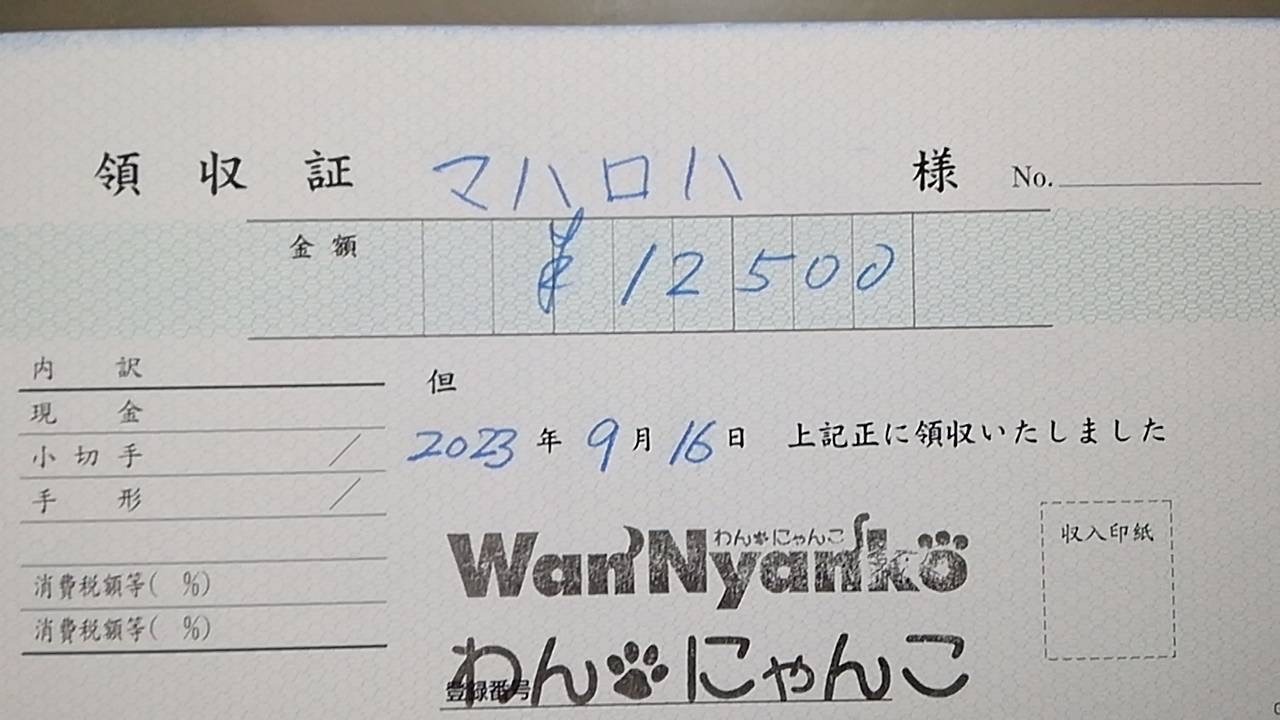 領収証 マハロハ 様 No.
金額 ¥12500
内訳
現金
小切手 /
手形 /
消費税額等( %)
消費税額等( %)
但
2023年9月16日 上記正に領収いたしました
収入印紙
わんにゃんこ
Wan'Nyanko
わんにゃんこ
登録番号